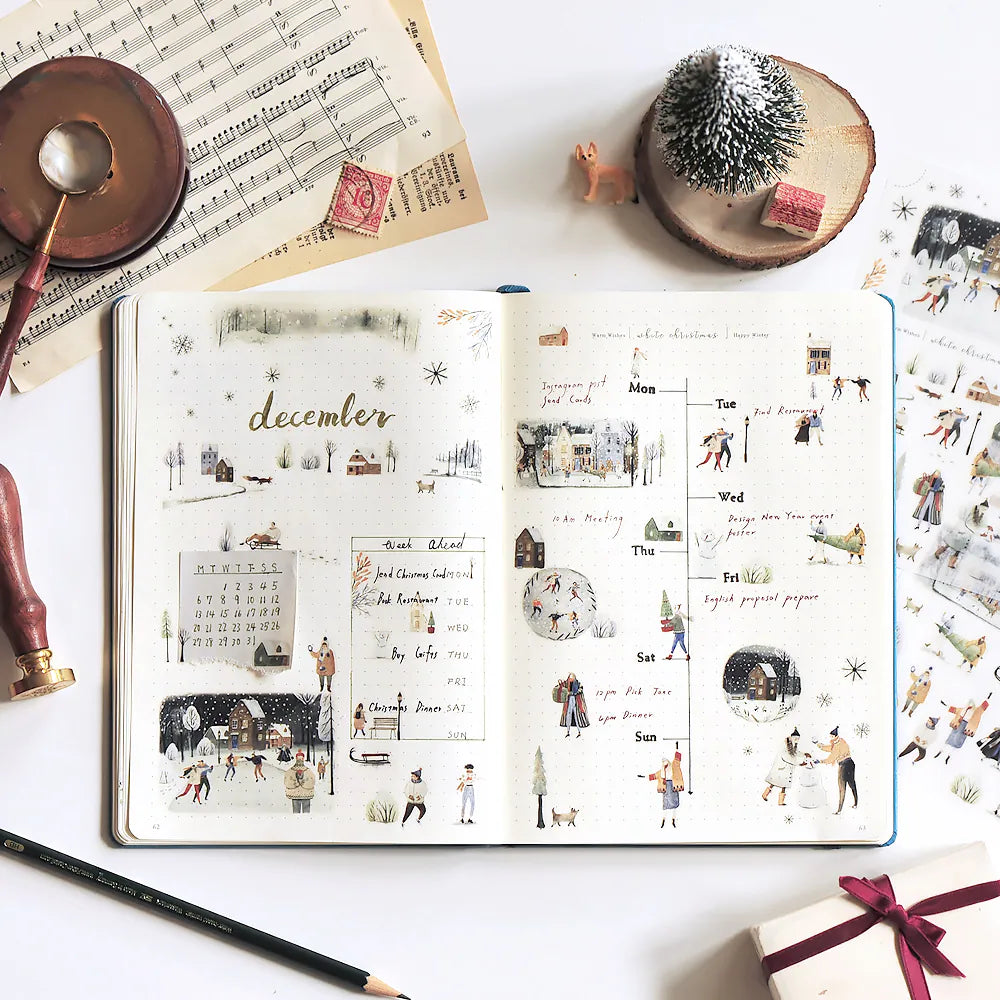 93
december
week Ahead
Send Christmas Card MON
Book Restaurant TUE
WED
Buy Gifts THU
FRI
Christmas Dinner SAT
SUN
M T W T F S S
1 2 3 4 5
6 7 8 9 10 11 12
13 14 15 16 17 18 19
20 21 22 23 24 25 26
27 28 29 30 31
62
Warm Wishes | white christmas | Happy Winter
Instagram post
Send Cards
Mon
Tue
Find Restaurant
Wed
10 Am Meeting
Design New Year event
poster
Thu
Fri
English proposal prepare
Sat
12pm Pick Jane
6pm Dinner
Sun
63
white christmas